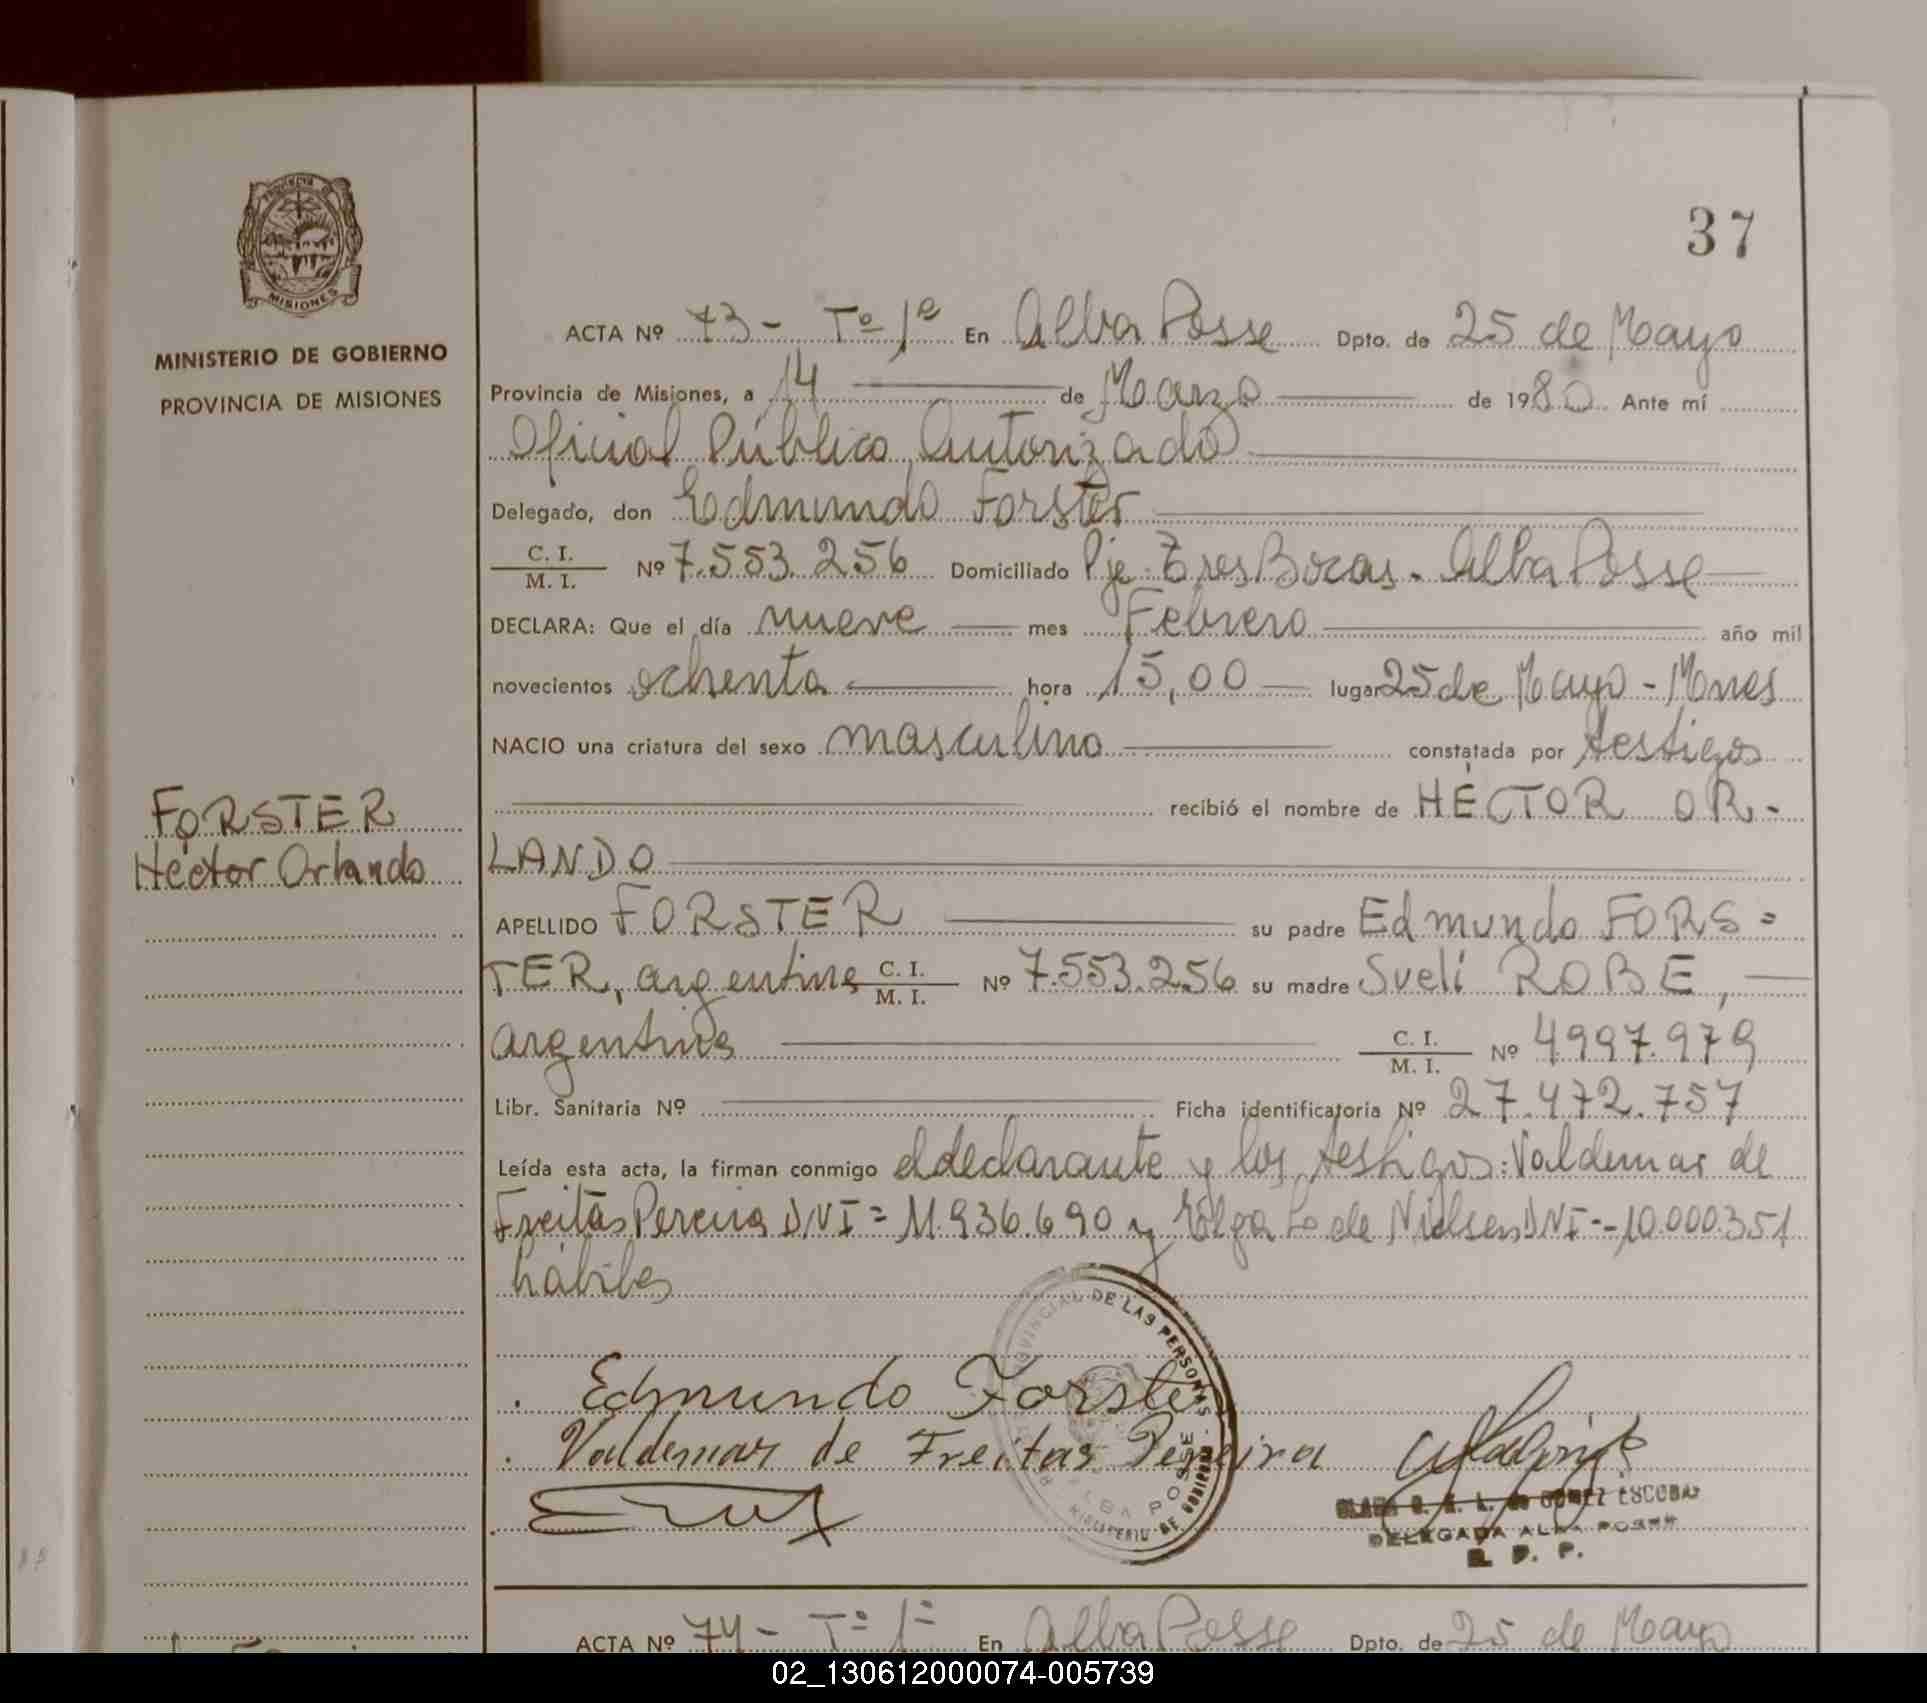 37
PROVINCIA DE
MISIONES
MINISTERIO DE GOBIERNO
PROVINCIA DE MISIONES
ACTA Nº 73 - Tº 1º En Alba Posse Dpto. de 25 de Mayo
Provincia de Misiones, a 14 de Marzo de 1980 Ante mí
Oficial Público Autorizado
Delegado, don Edmundo Forster
C. I.
M. I. Nº 7.553.256 Domiciliado Pje. Tres Bocas. Alba Posse
DECLARA: Que el día nueve mes Febrero año mil
novecientos ochenta hora 15,00 lugar 25 de Mayo - Mnes
NACIO una criatura del sexo masculino constatada por testigos
recibió el nombre de HÉCTOR OR-
FORSTER
Héctor Orlando
LANDO
APELLIDO FORSTER su padre Edmundo FORS=
TER, argentino C. I.
M. I. Nº 7.553.256 su madre Sueli ROBE,
argentina C. I.
M. I. Nº 4997.979
Libr. Sanitaria Nº Ficha identificatoria Nº 27.472.757
Leída esta acta, la firman conmigo el declarante y los testigos: Valdemar de
Freitas Pereira DNI= 11.936.690 y de Nielsen DNI=-10.000.351
hábiles
Edmundo Forster
Valdemar de Freitas Pereira
PROVINCIAL DE LAS PERSONAS
ALBA POSSE
MINISTERIO DE GOBIERNO
DE GOMEZ ESCOBAR
DELEGADA ALBA POSSE
R. P. P.
ACTA Nº 74 - Tº 1º En Alba Posse Dpto. de 25 de Mayo
02_130612000074-005739